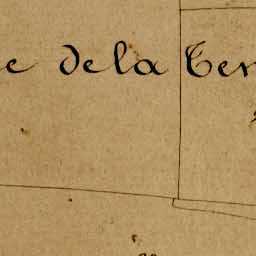 e de la Ter